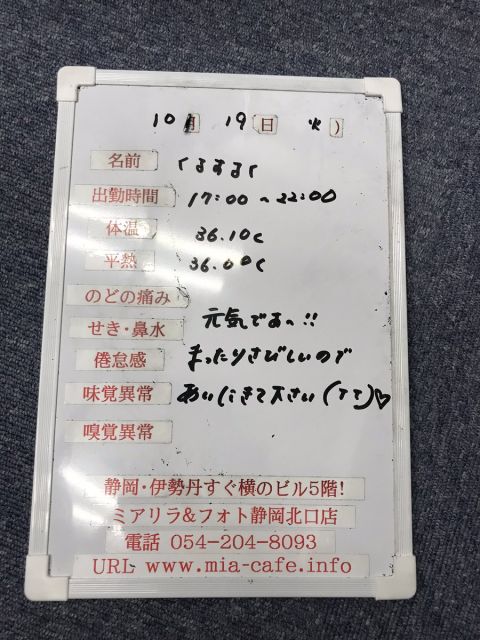 10月 19日 火)
名前 くるするく
出勤時間 17:00~22:00
体温 36.1℃
平熱 36.0℃
のどの痛み
せき・鼻水 元気であ〜!!
倦怠感 まったりさびしいので
味覚異常 あいにきて下さい(TT)♡
嗅覚異常
静岡・伊勢丹すぐ横のビル5階!
ミアリラ&フォト静岡北口店
電話 054-204-8093
URL www.mia-cafe.info